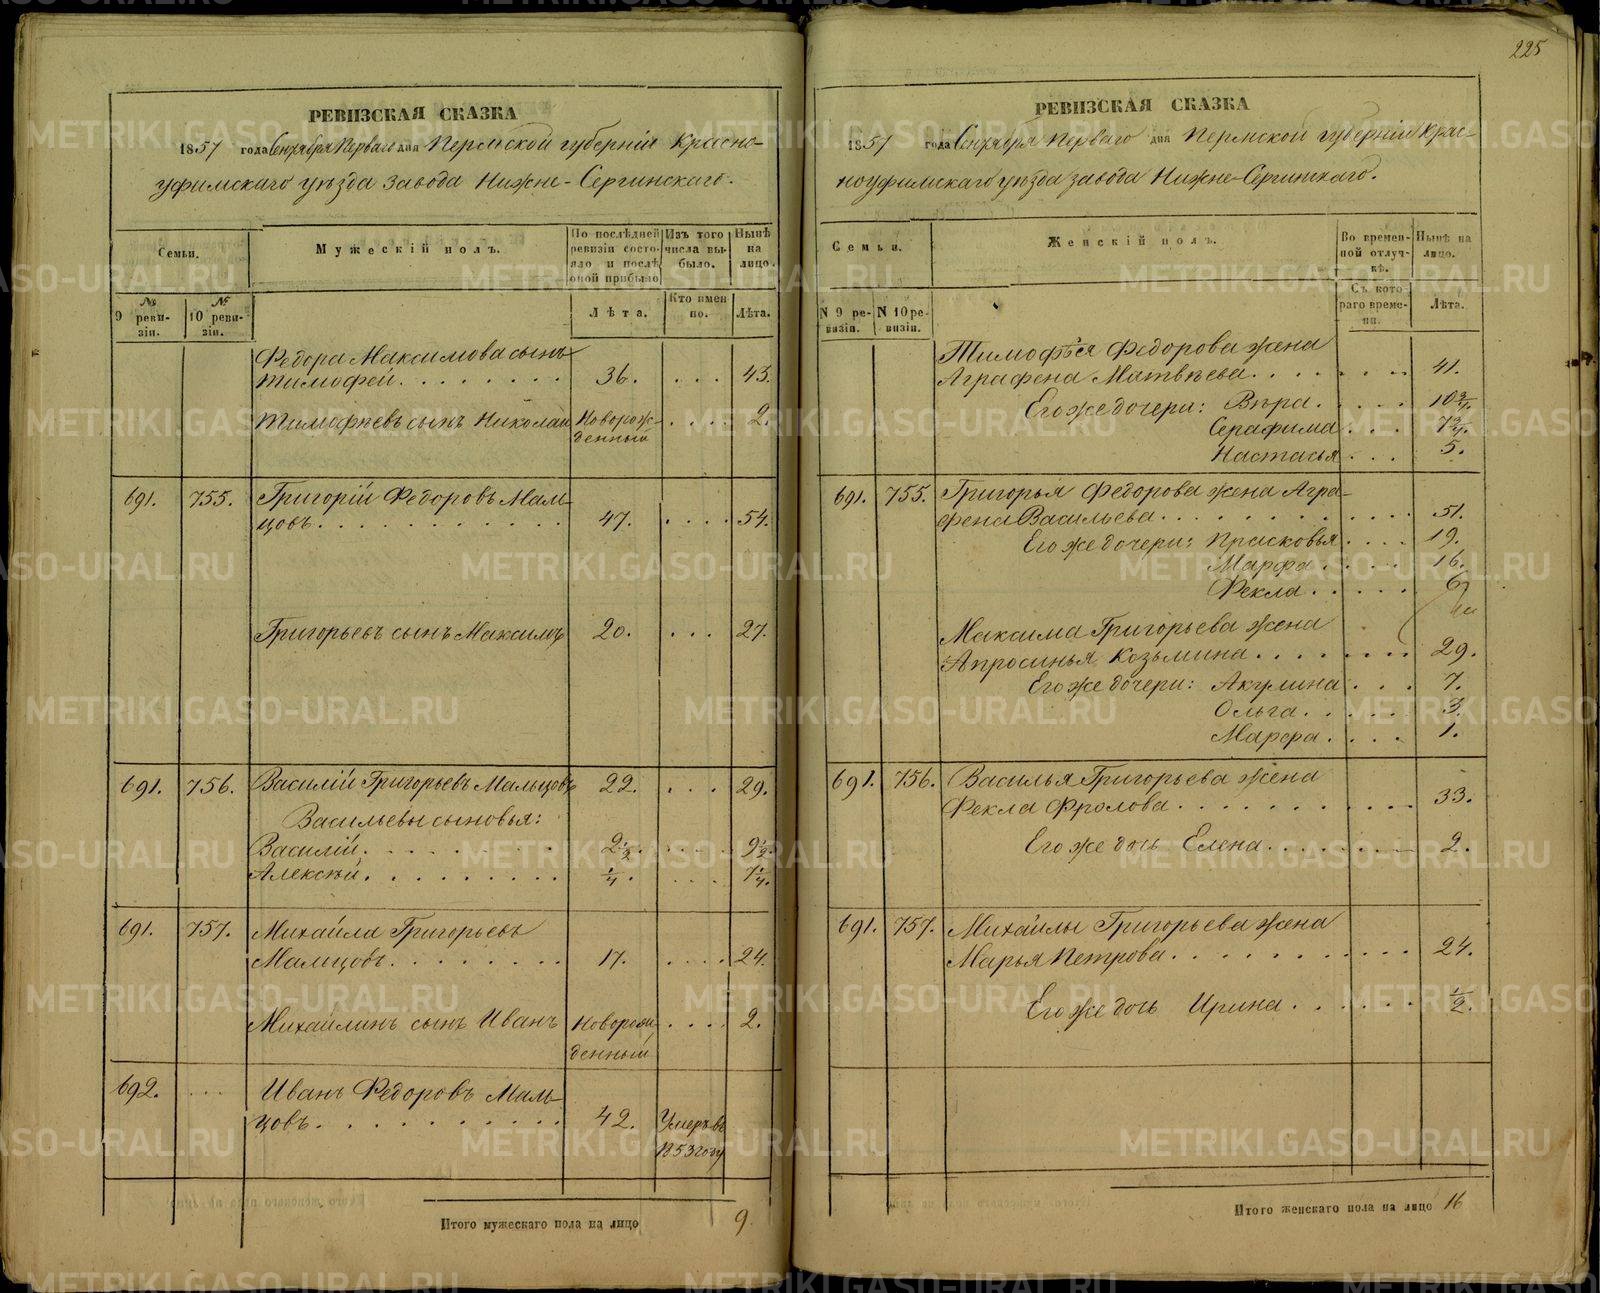 225
РЕВИЗСКАЯ СКАЗКА
1857 года Сентября Перваго дня Пермской губерніи Красно-
уфимскаго уѣзда завода Нижне-Сергинскаго.
Семьи.
Мужескій полъ.
По послѣдней ревизіи состояло и послѣ оной прибыло
Изъ того числа выбыло.
Нынѣ на лицо.
№ 9 ревизіи.
№ 10 ревизіи.
Лѣта.
Кто именно.
Лѣта.
Федора Максимова сынъ
Тимофей. 36. ... 43.
Тимофѣевъ сынъ Николай Новорож- .... 2.
денный
691. 755. Григорій Федоровъ Маль-
цовъ. 47. .... 54.
Григорьевъ сынъ Максимъ 20. ... 27.
691. 756. Василій Григорьевъ Мальцовъ 22. ... 29.
Васильевы сыновья:
Василій. 2 1/2. .... 9 1/2.
Алексѣй. 1/4. ... 7 1/4.
691. 757. Михайла Григорьевъ
Мальцовъ. 17. .... 24.
Михайлинъ сынъ Иванъ Новорож- .... 2.
денный
692. ... Иванъ Федоровъ Маль-
цовъ. 42. Умеръ въ
1853 году
Итого мужескаго пола на лицо 9.
РЕВИЗСКАЯ СКАЗКА
1857 года Сентября Перваго дня Пермской губерніи Крас-
ноуфимскаго уѣзда завода Нижне-Сергинскаго.
Семьи.
Женскій полъ.
Во временной отлучкѣ.
Нынѣ на лицо.
N 9 ревизіи.
N 10 ревизіи.
Съ котораго времени.
Лѣта.
Тимофѣя Федорова жена
Аграфена Матвѣева. 41.
Его же дочери: Вѣра. 10 3/4.
Серафима 7 3/4.
Настасья 5.
691. 755. Григорья Федорова жена Агра-
фена Васильева. 51.
Его же дочери: Прасковья 19.
Марфа. 16.
Фекла. 6
Максима Григорьева жена
Апросинья Козьмина. 29.
Его же дочери: Акулина 7.
Ольга. 3.
Марфа. 1.
691. 756. Василья Григорьева жена
Фекла Фролова. 33.
Его же дочь Елена. 2.
691. 757. Михайлы Григорьева жена
Марья Петрова. 24.
Его же дочь Ирина. 1/2.
Итого женскаго пола на лицо 16
METRIKI.GASO-URAL.RU